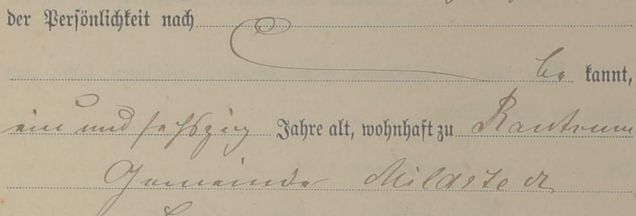 der Persönlichkeit nach
be kannt,
ein und sechszig Jahre alt, wohnhaft zu Rantrum
Gemeinde Mildstedt